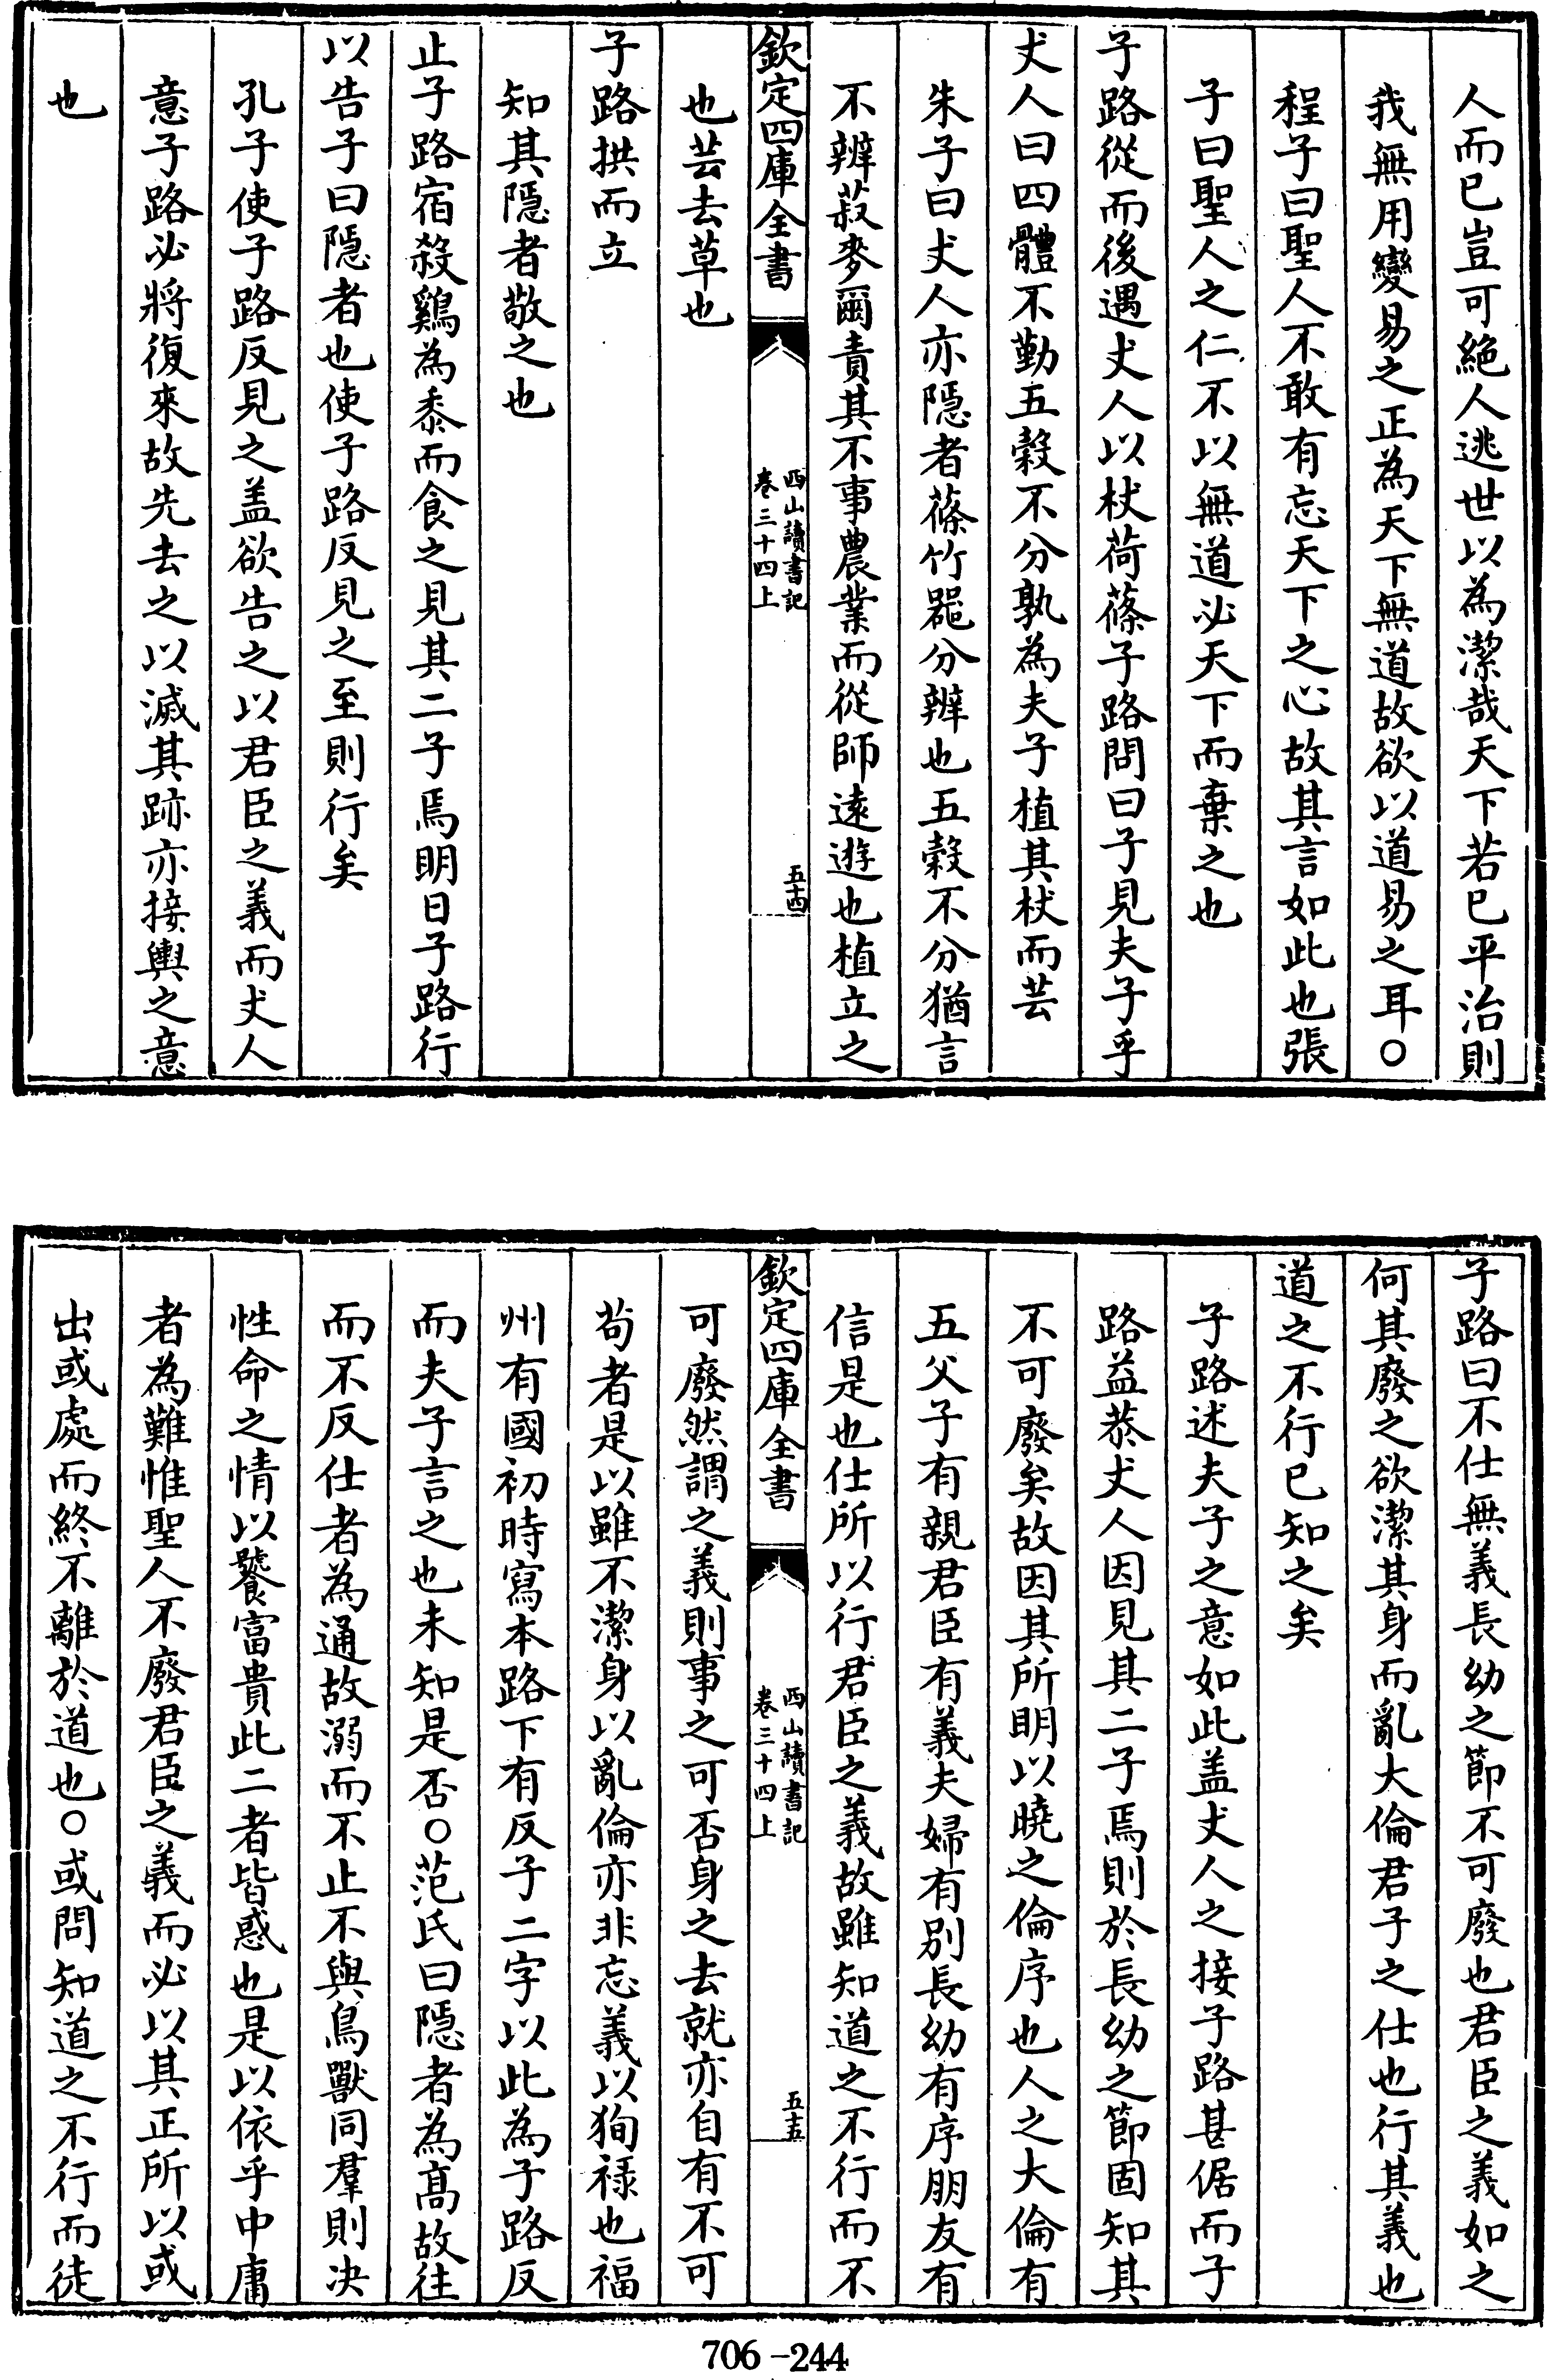 人而已豈可絶人逃世以為潔哉天下若已平治則
我無用變易之正為天下無道故欲以道易之耳○
程子曰聖人不敢有忘天下之心故其言如此也張
子曰聖人之仁不以無道必天下而棄之也
子路從而後遇丈人以杖荷蓧子路問曰子見夫子乎
丈人曰四體不勤五穀不分孰為夫子植其杖而芸
朱子曰丈人亦隠者蓧竹噐分辨也五穀不分猶言
不辨菽麥爾責其不事農業而從師遠遊也植立之
欽定四庫全書
西山讀書記
卷三十四上
五十四
也芸去草也
子路拱而立
知其隠者敬之也
止子路宿殺鷄為黍而食之見其二子焉明日子路行
以告子曰隠者也使子路反見之至則行矣
孔子使子路反見之盖欲告之以君臣之義而丈人
意子路必將復來故先去之以滅其跡亦接輿之意
也
子路曰不仕無義長幼之節不可廢也君臣之義如之
何其廢之欲潔其身而亂大倫君子之仕也行其義也
道之不行已知之矣
子路述夫子之意如此盖丈人之接子路甚倨而子
路益恭丈人因見其二子焉則於長幼之節固知其
不可廢矣故因其所明以曉之倫序也人之大倫有
五父子有親君臣有義夫婦有別長幼有序朋友有
信是也仕所以行君臣之義故雖知道之不行而不
欽定四庫全書
西山讀書記
卷三十四上
五十五
可廢然謂之義則事之可否身之去就亦自有不可
茍者是以雖不潔身以亂倫亦非忘義以狥禄也福
州有國初時寫本路下有反子二字以此為子路反
而夫子言之也未知是否○范氏曰隠者為髙故往
而不反仕者為通故溺而不止不與鳥獸同羣則决
性命之情以饕富貴此二者皆惑也是以依乎中庸
者為難惟聖人不廢君臣之義而必以其正所以或
出或處而終不離於道也○或問知道之不行而徒
706-244